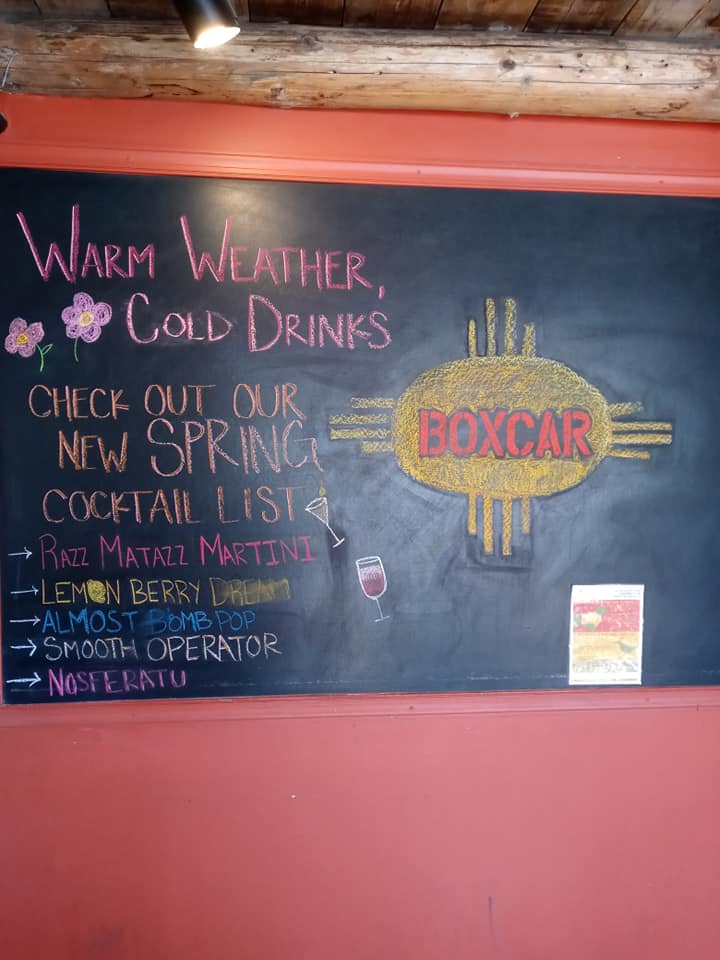 WARM WEATHER,
COLD DRINKS
CHECK OUT OUR
NEW SPRING
COCKTAIL LIST
→ RAZZ MATAZZ MARTINI
→ LEMON BERRY DREAM
→ ALMOST BOMB POP
→ SMOOTH OPERATOR
→ NOSFERATU
BOXCAR